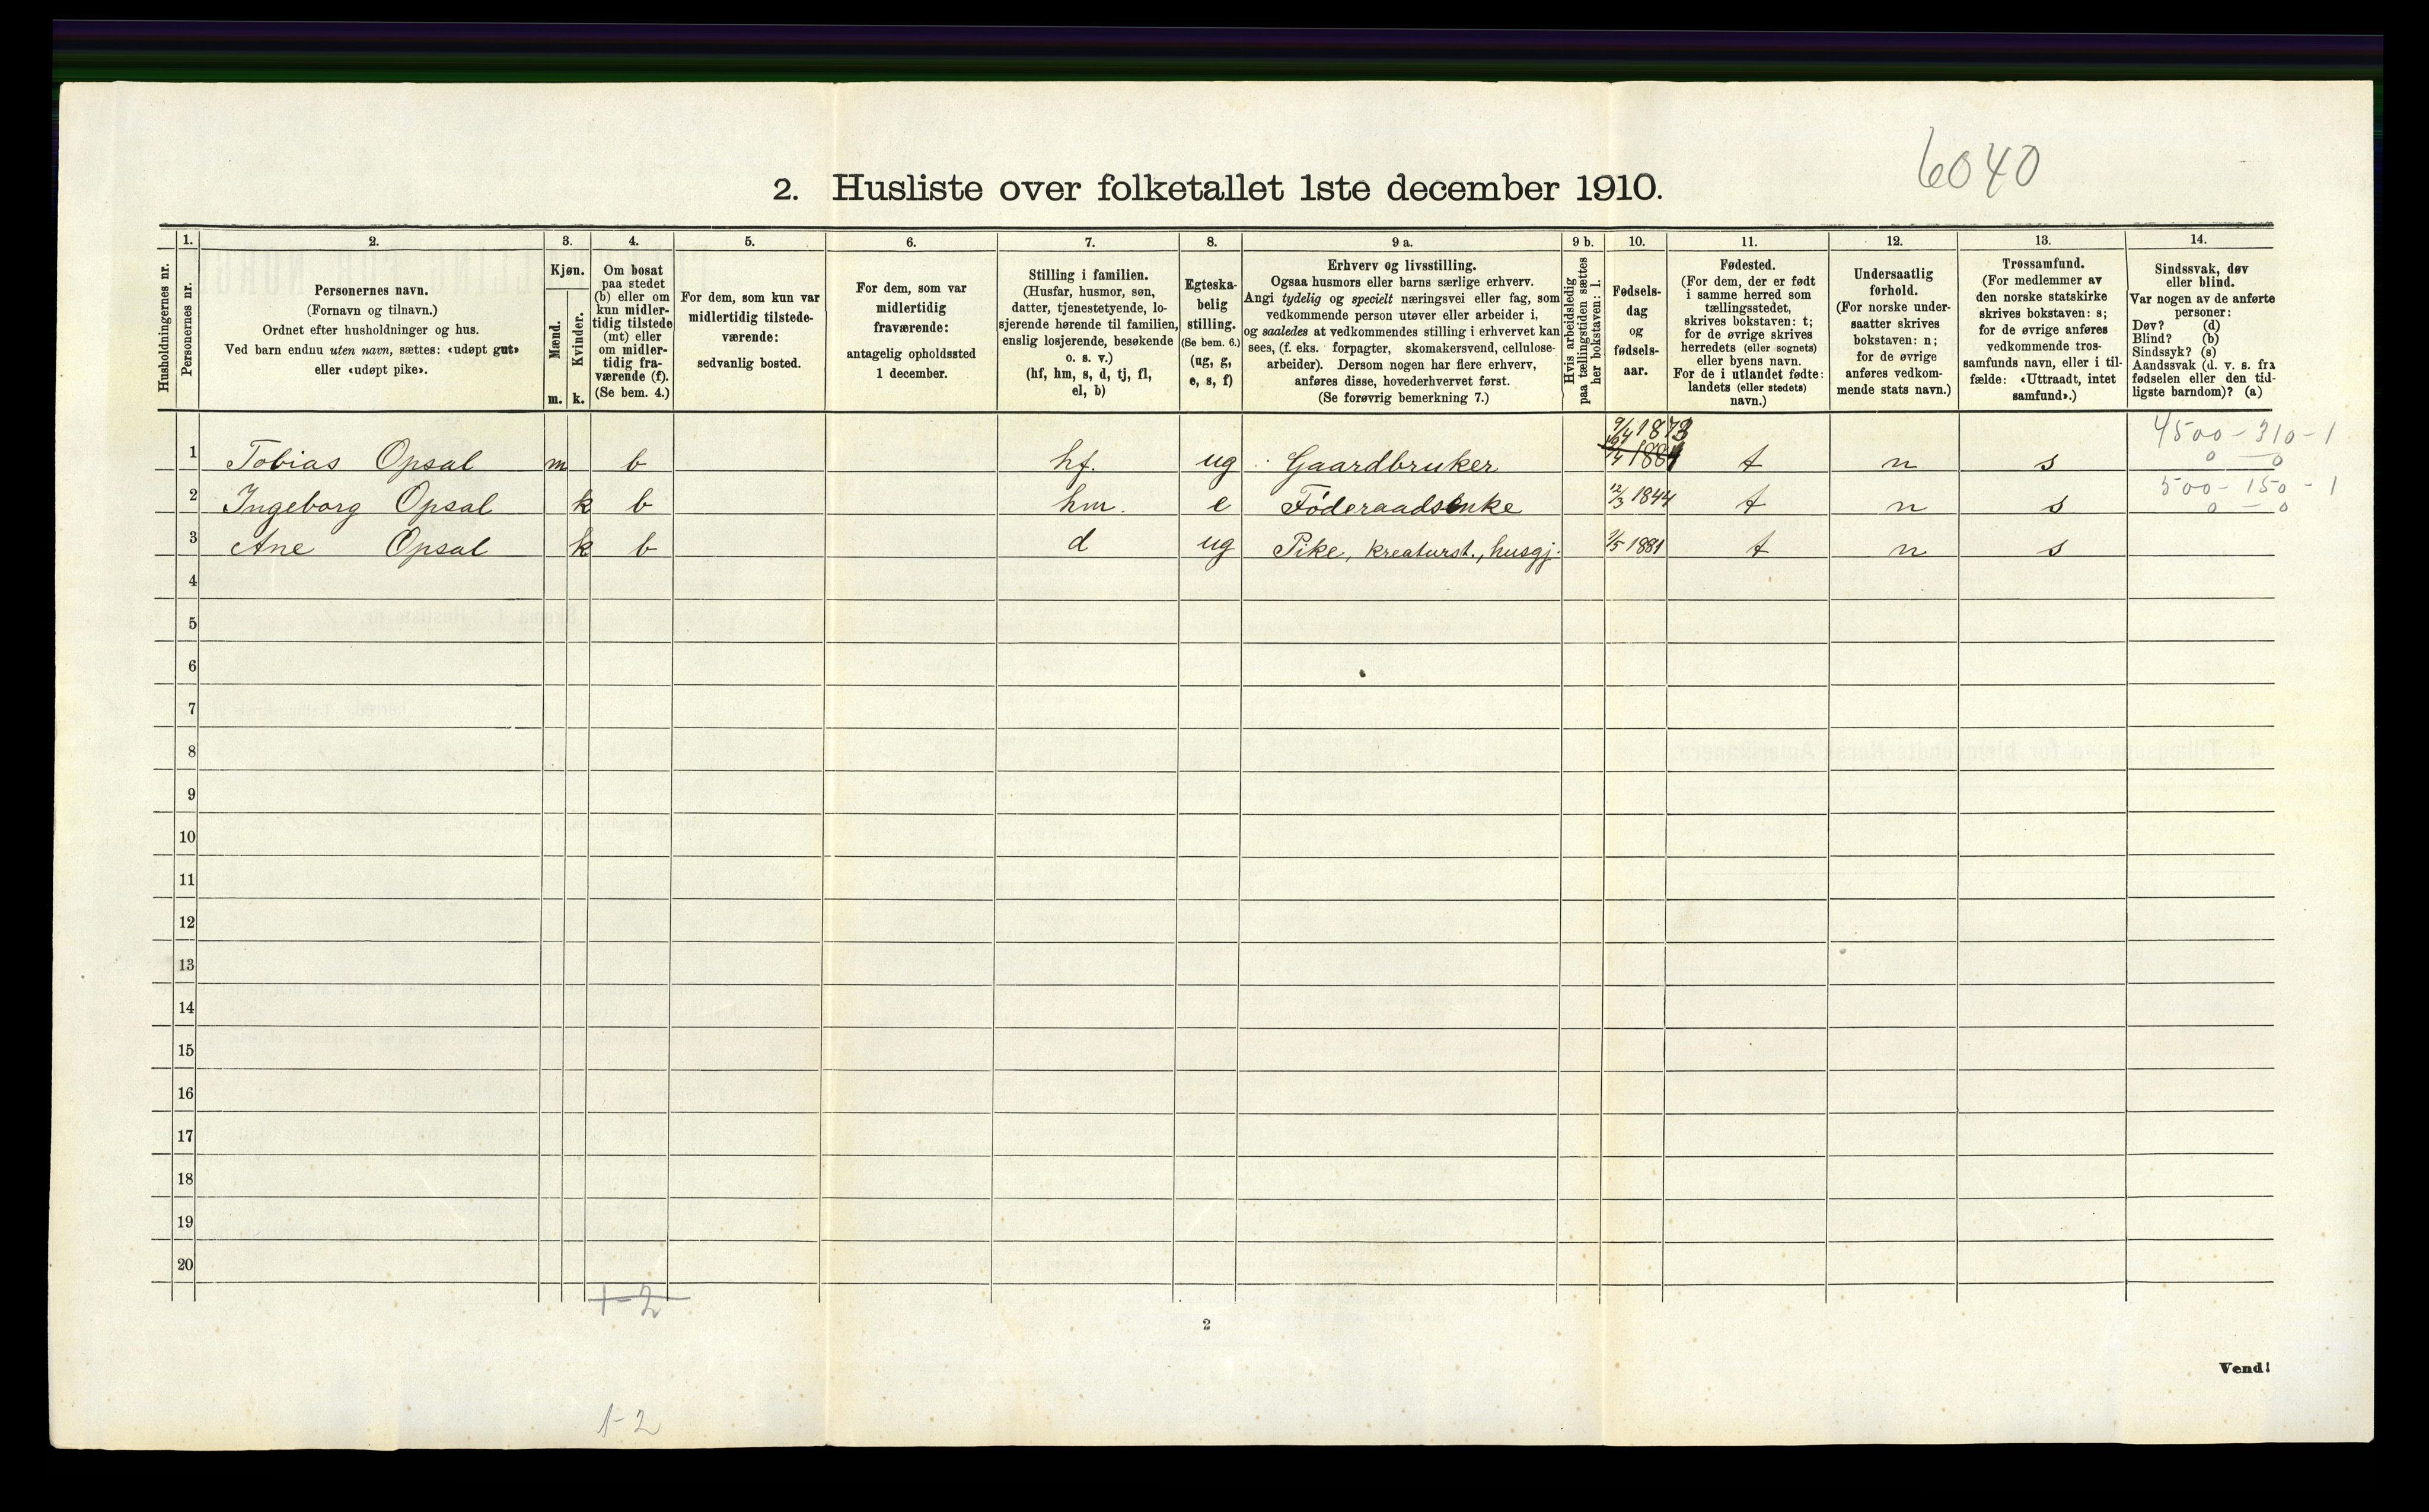 6040
2. Husliste over folketallet 1ste december 1910.
Husholdningernes nr.
1.
Personernes nr.
2.
Personernes navn.
(Fornavn og tilnavn.)
Ordnet efter husholdninger og hus.
Ved barn endnu uten navn, sættes: «udøpt gut»
eller «udøpt pike».
3.
Kjøn.
Mænd.
Kvinder.
m. k.
4.
Om bosat
paa stedet
(b) eller om
kun midler-
tidig tilstede
(mt) eller
om midler-
tidig fra-
værende (f).
(Se bem. 4.)
5.
For dem, som kun var
midlertidig tilstede-
værende:
sedvanlig bosted.
6.
For dem, som var
midlertidig
fraværende:
antagelig opholdssted
1 december.
7.
Stilling i familien.
(Husfar, husmor, søn,
datter, tjenestetyende, lo-
sjerende hørende til familien,
enslig losjerende, besøkende
o. s. v.)
(hf, hm, s, d, tj, fl,
el, b)
8.
Egteska-
belig
stilling.
(Se bem. 6.)
(ug, g,
e, s, f)
9 a.
Erhverv og livsstilling.
Ogsaa husmors eller barns særlige erhverv.
Angi tydelig og specielt næringsvei eller fag, som
vedkommende person utøver eller arbeider i,
og saaledes at vedkommendes stilling i erhvervet kan
sees, (f. eks. forpagter, skomakersvend, cellulose-
arbeider). Dersom nogen har flere erhverv,
anføres disse, hovederhvervet først.
(Se forøvrig bemerkning 7.)
9 b.
Hvis arbeidsledig
paa tællingstiden sættes
her bokstaven: l.
10.
Fødsels-
dag
og
fødsels-
aar.
11.
Fødested.
(For dem, der er født
i samme herred som
tællingsstedet,
skrives bokstaven: t;
for de øvrige skrives
herredets (eller sognets)
eller byens navn.
For de i utlandet fødte:
landets (eller stedets)
navn.)
12.
Undersaatlig
forhold.
(For norske under-
saatter skrives
bokstaven: n;
for de øvrige
anføres vedkom-
mende stats navn.)
13.
Trossamfund.
(For medlemmer av
den norske statskirke
skrives bokstaven: s;
for de øvrige anføres
vedkommende tros-
samfunds navn, eller i til-
fælde: «Uttraadt, intet
samfund».)
14.
Sindssvak, døv
eller blind.
Var nogen av de anførte
personer:
Døv? (d)
Blind? (b)
Sindssyk? (s)
Aandssvak (d. v. s. fra
fødselen eller den tid-
ligste barndom)? (a)
9/4 1873 4500-310-1
1 Tobias Opsal m b hf. ug Gaardbruker 1881 t n s 0 - 0
500-150-1
2 Ingeborg Opsal k b hm. e Føderaadsenke 12/3 1844 t n s 0 - 0
3 Ane Opsal k b d ug Pike, kreaturst., husgj. 1881 t n s
4
5
6
7
8
9
10
11
12
13
14
15
16
17
18
19
20
1-2
2
Vend!
1-2